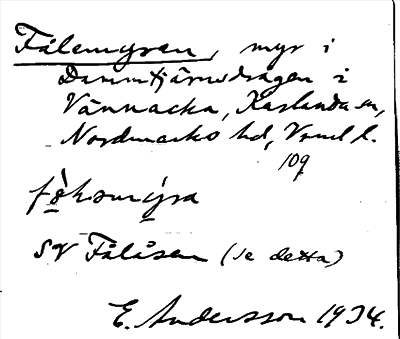 Fålemyren, myr i
Dammtjärnsdrågen i
Vännacka, Karlanda sn,
Nordmarks hd, Vrml l.
109
SV Fålåsen (se detta)
E. Andersson 1934.